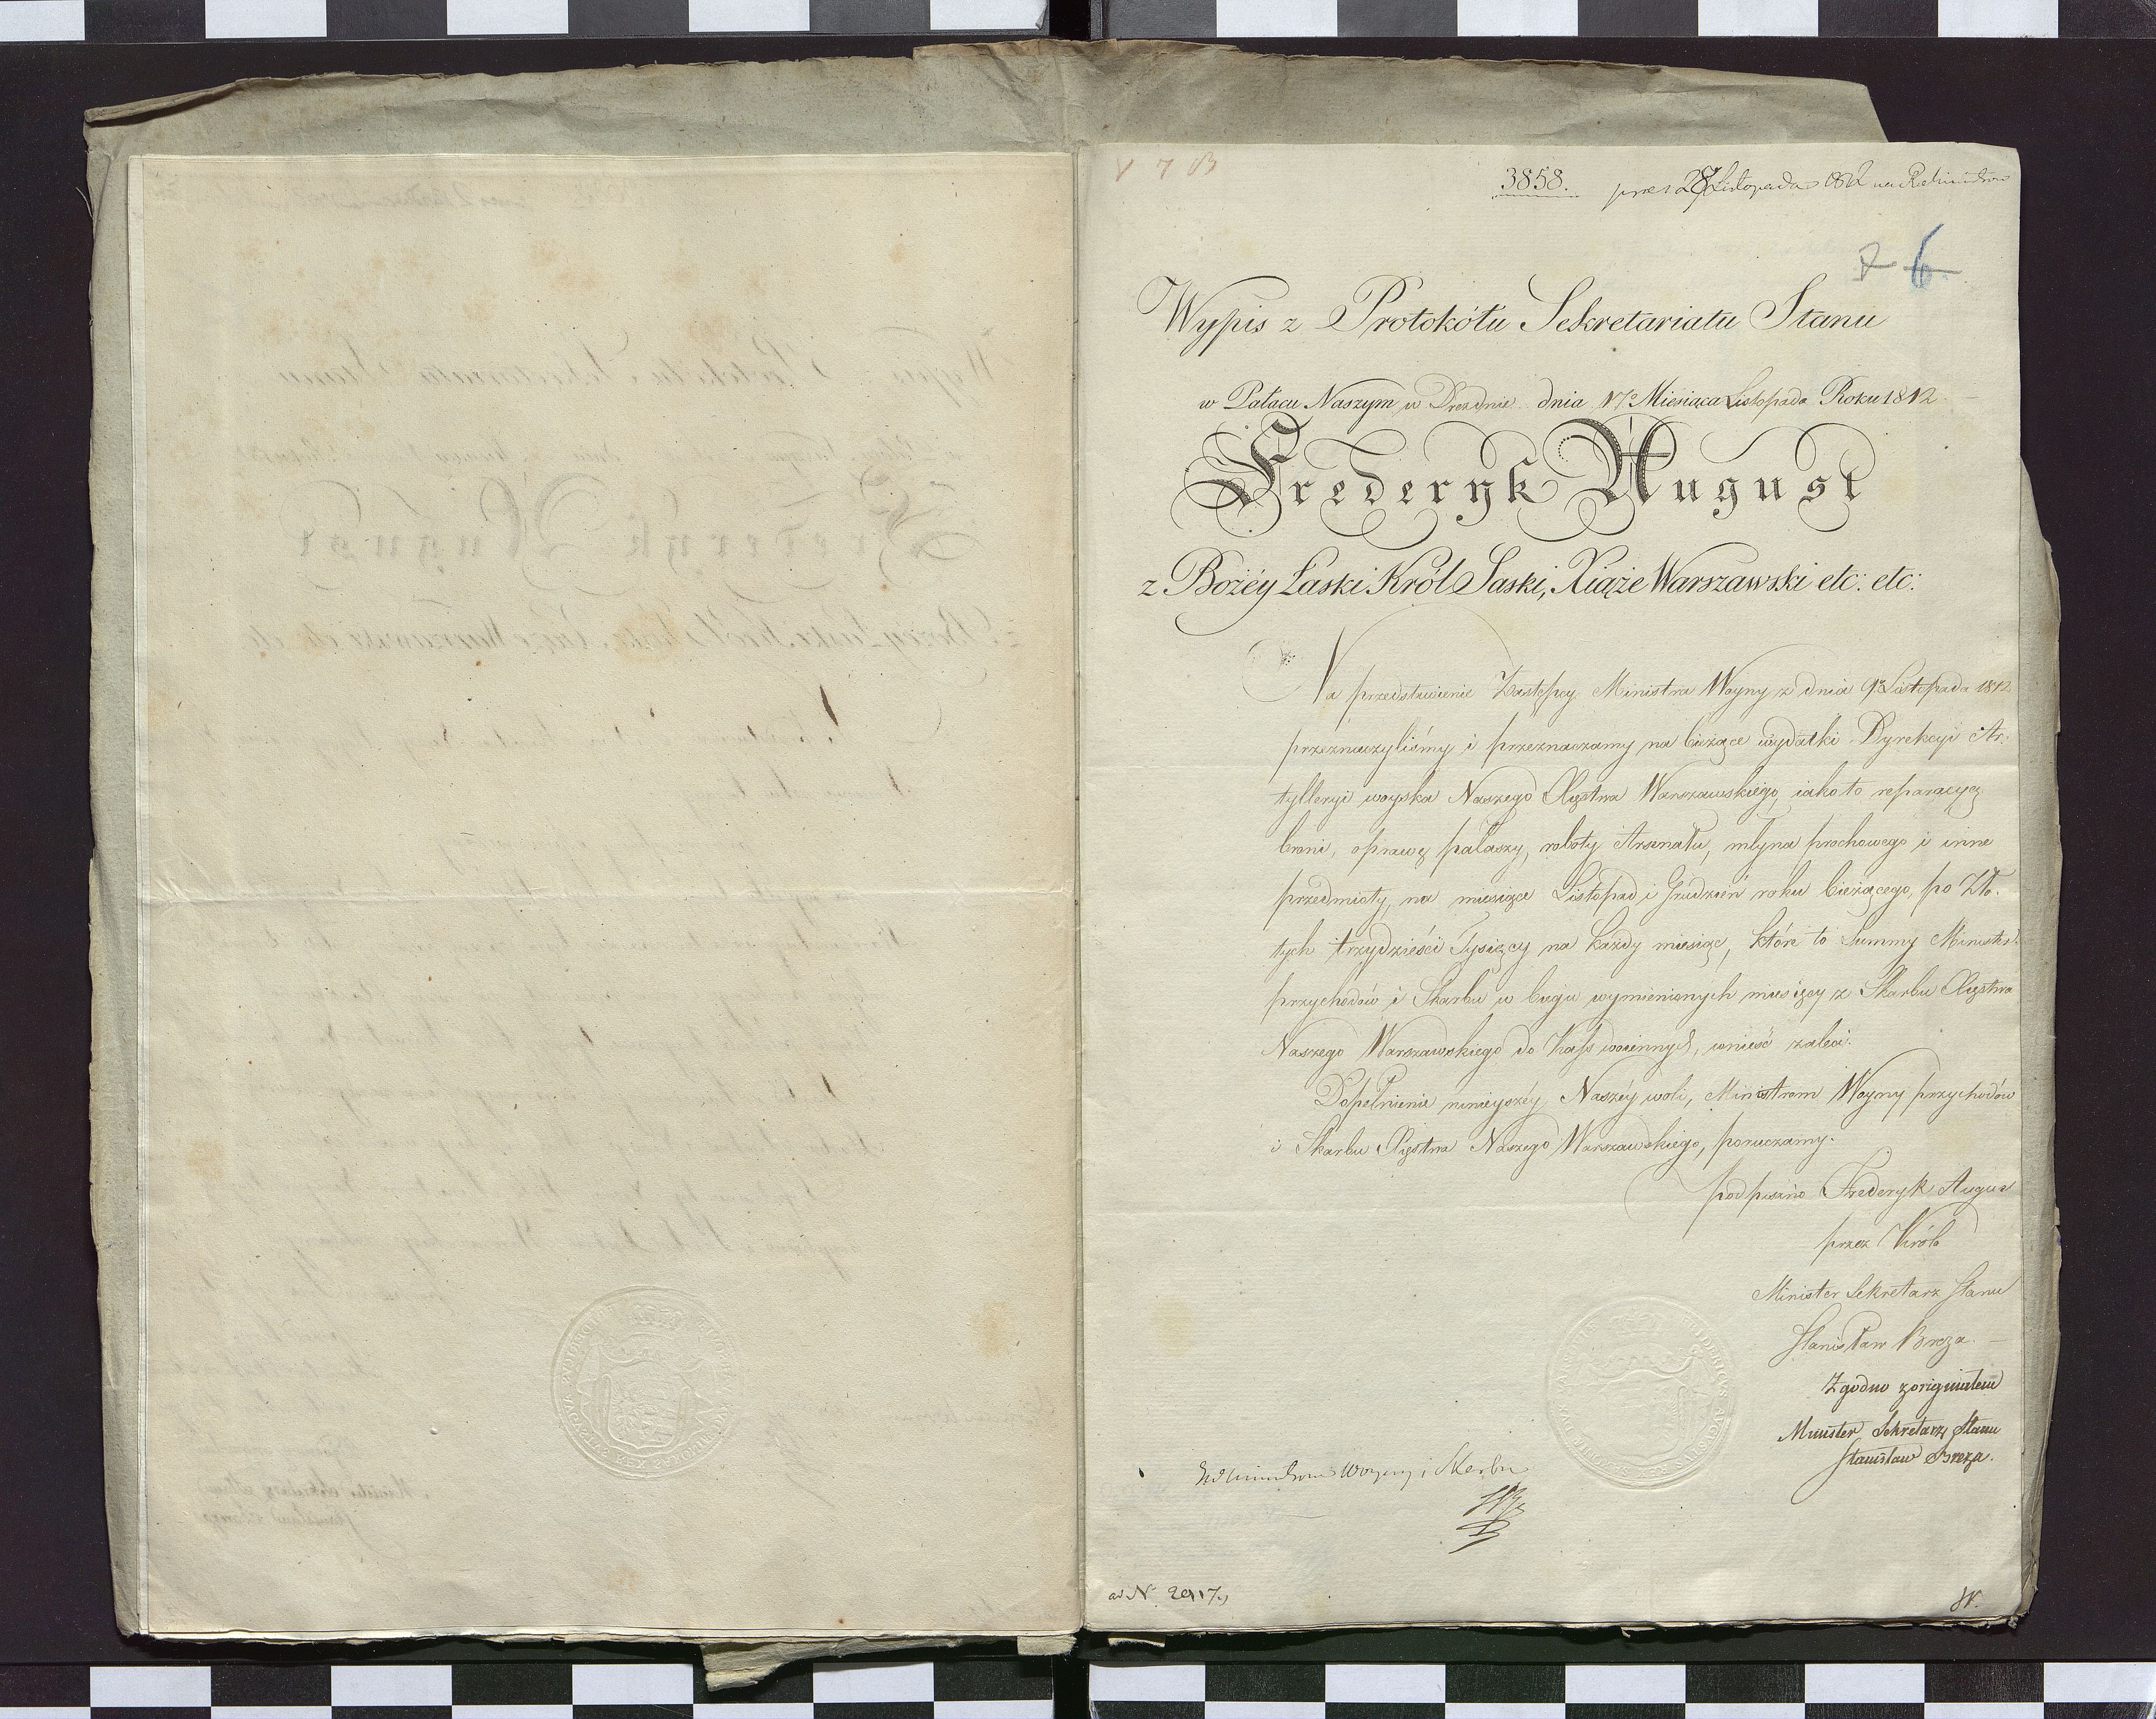 3858. 28 Listopada 1812
6
Wypis z Protokółu Sekretariatu Stanu
w Pałacu Naszym w Dreznie dnia 17º Miesiąca Listopada Roku 1812
Frederyk August
z Bożéy Łaski Król Saski, Xiąże Warszawski etc: etc:
Na przedstawienie Zastępcy Ministra Woyny z dnia 9º Listopada 1812
przeznaczyliśmy i przeznaczamy na bieżące wydatki Dyrekcyi Ar-
tylleryi woyska Naszego Xięstwa Warszawskiego, iako to reparacyą
broni, oprawę pałaszy, roboty Arsenału, młyna prochowego i inne
przedmioty, na miesiące Listopad i Grudzień roku bieżącego, po Zło-
tych trzydzieści Tysięcy na każdy miesiąc, które to Summy Minister
przychodów i Skarbu w biegu wymienionych miesięcy z Skarbu Xięstwa
Naszego Warszawskiego do Kass woiennych, wnieść zaleci.
Dopełnienie ninieyszéy Naszéy woli, Ministrom Woyny przychodów
i Skarbu Xięstwa Naszego Warszawskiego, poruczamy.
podpisano Frederyk August
przez Króla
Minister Sekretarz Stanu
Stanisław Breza.
Zgodno z originałem
Minister Sekretarz Stanu
Stanisław Breza.
Woyny i Skarbu
ad N. 2917.